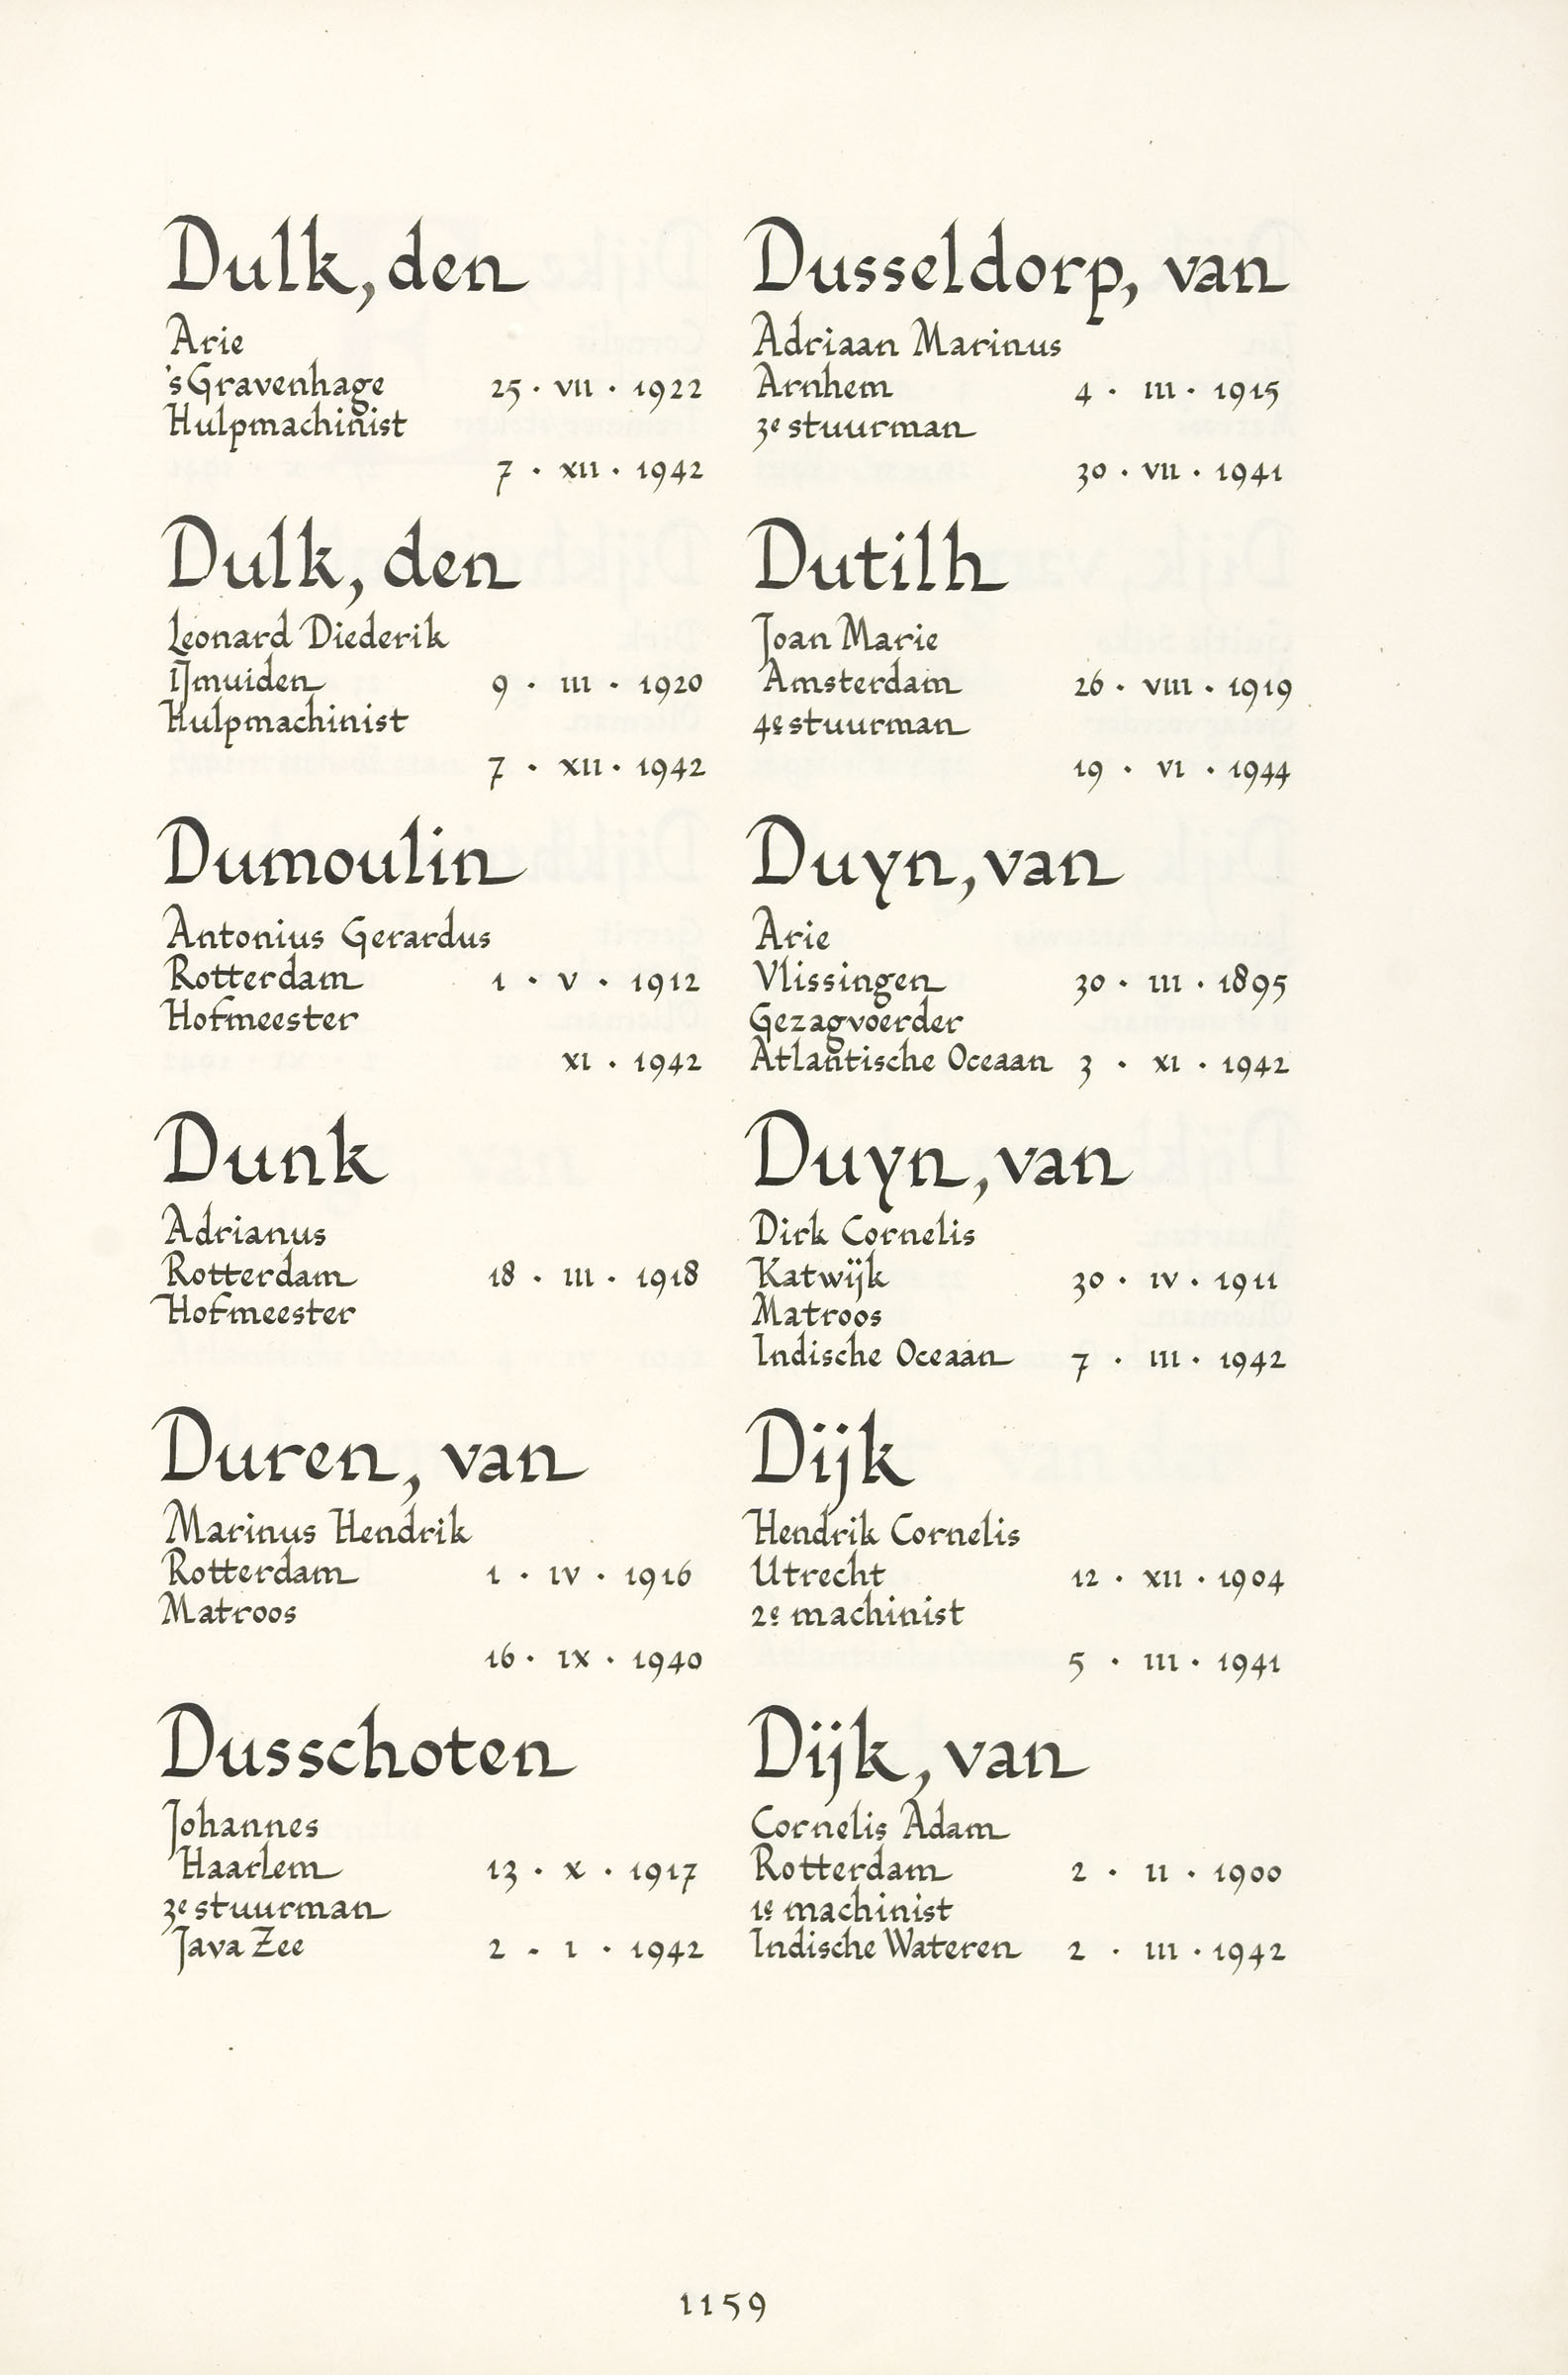 Dulk, den
Arie
'sGravenhage 25 · VII · 1922
Hulpmachinist
7 · XII · 1942
Dulk, den
Leonard Diederik
IJmuiden 9 · III · 1920
Hulpmachinist
7 · XII · 1942
Dumoulin
Antonius Gerardus
Rotterdam 1 · V · 1912
Hofmeester
XI · 1942
Dunk
Adrianus
Rotterdam 18 · III · 1918
Hofmeester
Duren, van
Marinus Hendrik
Rotterdam 1 · IV · 1916
Matroos
16 · IX · 1940
Dusschoten
Johannes
Haarlem 13 · X · 1917
3e stuurman
Java Zee 2 - 1 · 1942
Dusseldorp, van
Adriaan Marinus
Arnhem 4 · III · 1915
3e stuurman
30 · VII · 1941
Dutilh
Joan Marie
Amsterdam 26 · VIII · 1919
4e stuurman
19 · VI · 1944
Duyn, van
Arie
Vlissingen 30 · III · 1895
Gezagvoerder
Atlantische Oceaan 3 · XI · 1942
Duyn, van
Dirk Cornelis
Katwijk 30 · IV · 1911
Matroos
Indische Oceaan 7 · III · 1942
Dijk
Hendrik Cornelis
Utrecht 12 · XII · 1904
2e machinist
5 · III · 1941
Dijk, van
Cornelis Adam
Rotterdam 2 · II · 1900
1e machinist
Indische Wateren 2 · III · 1942
1159